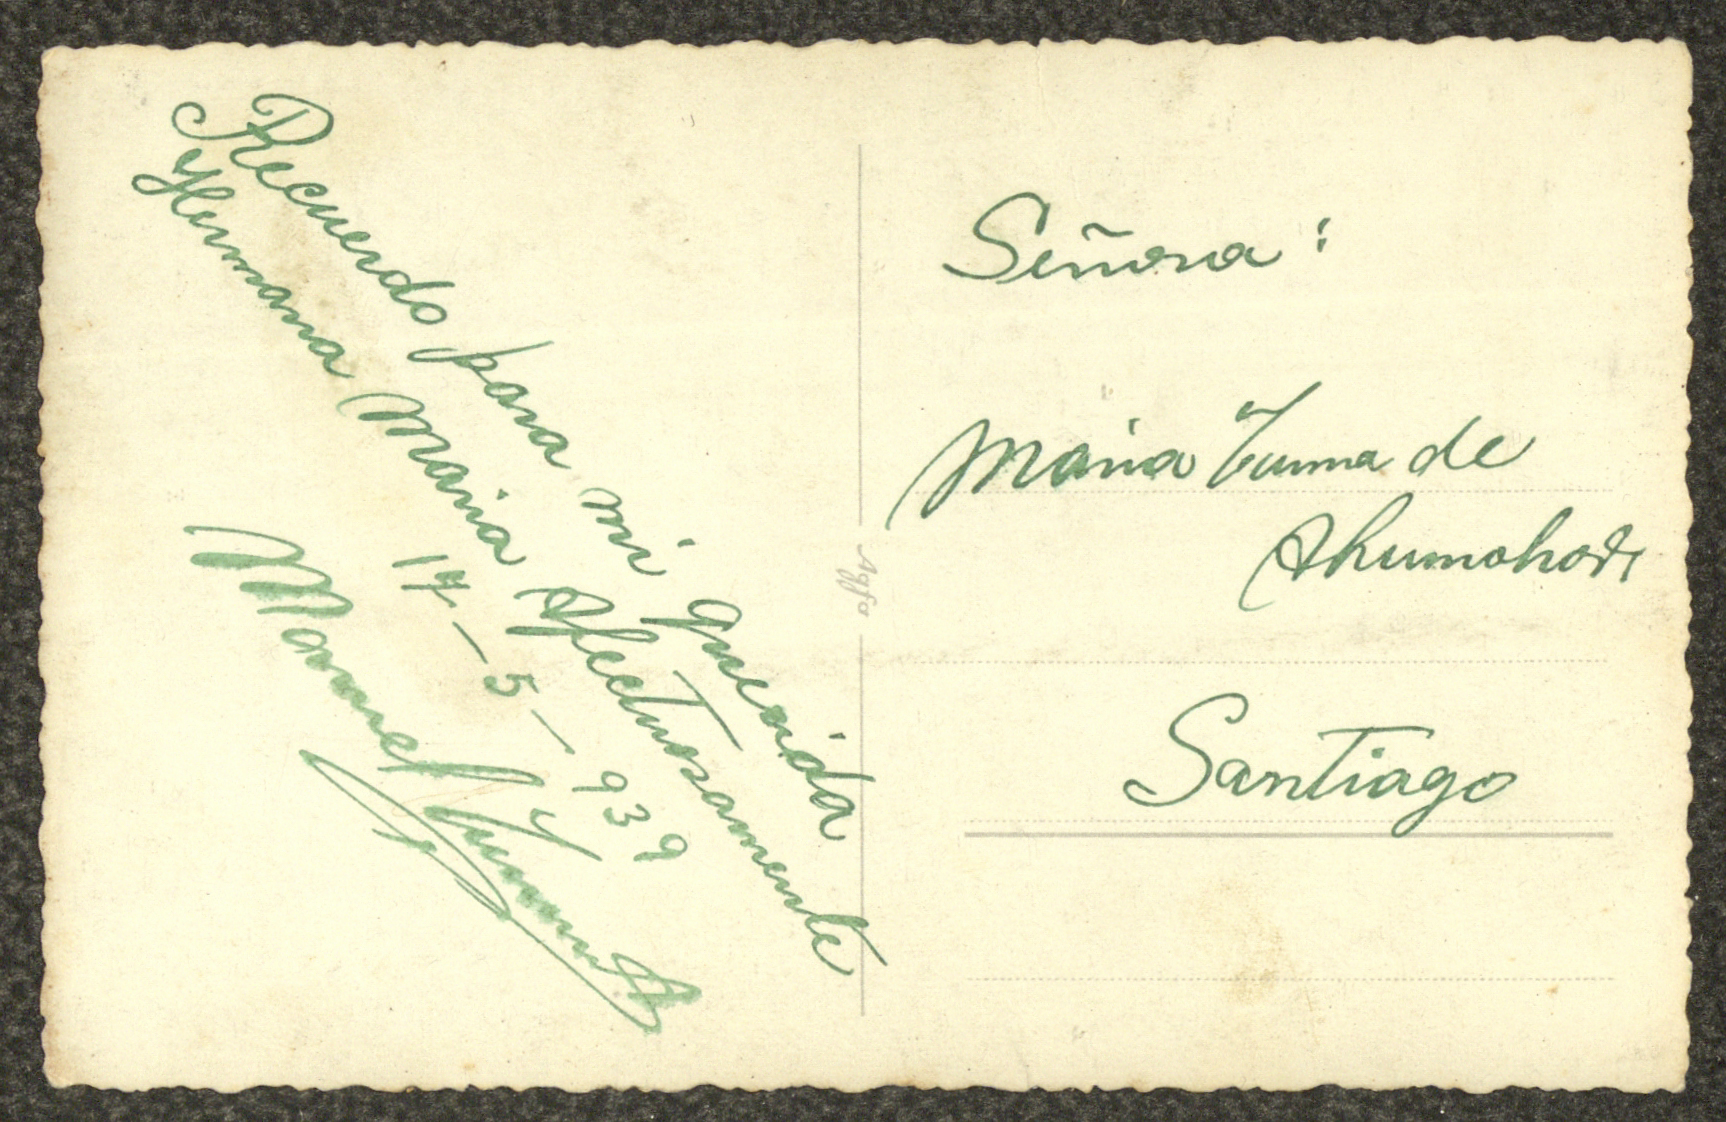 Recuerdo para mi querida
Hermana Maria Afectuosamente
17-5-939
Manuel
Agfa
Señora:
Maria Tuma de
Santiago